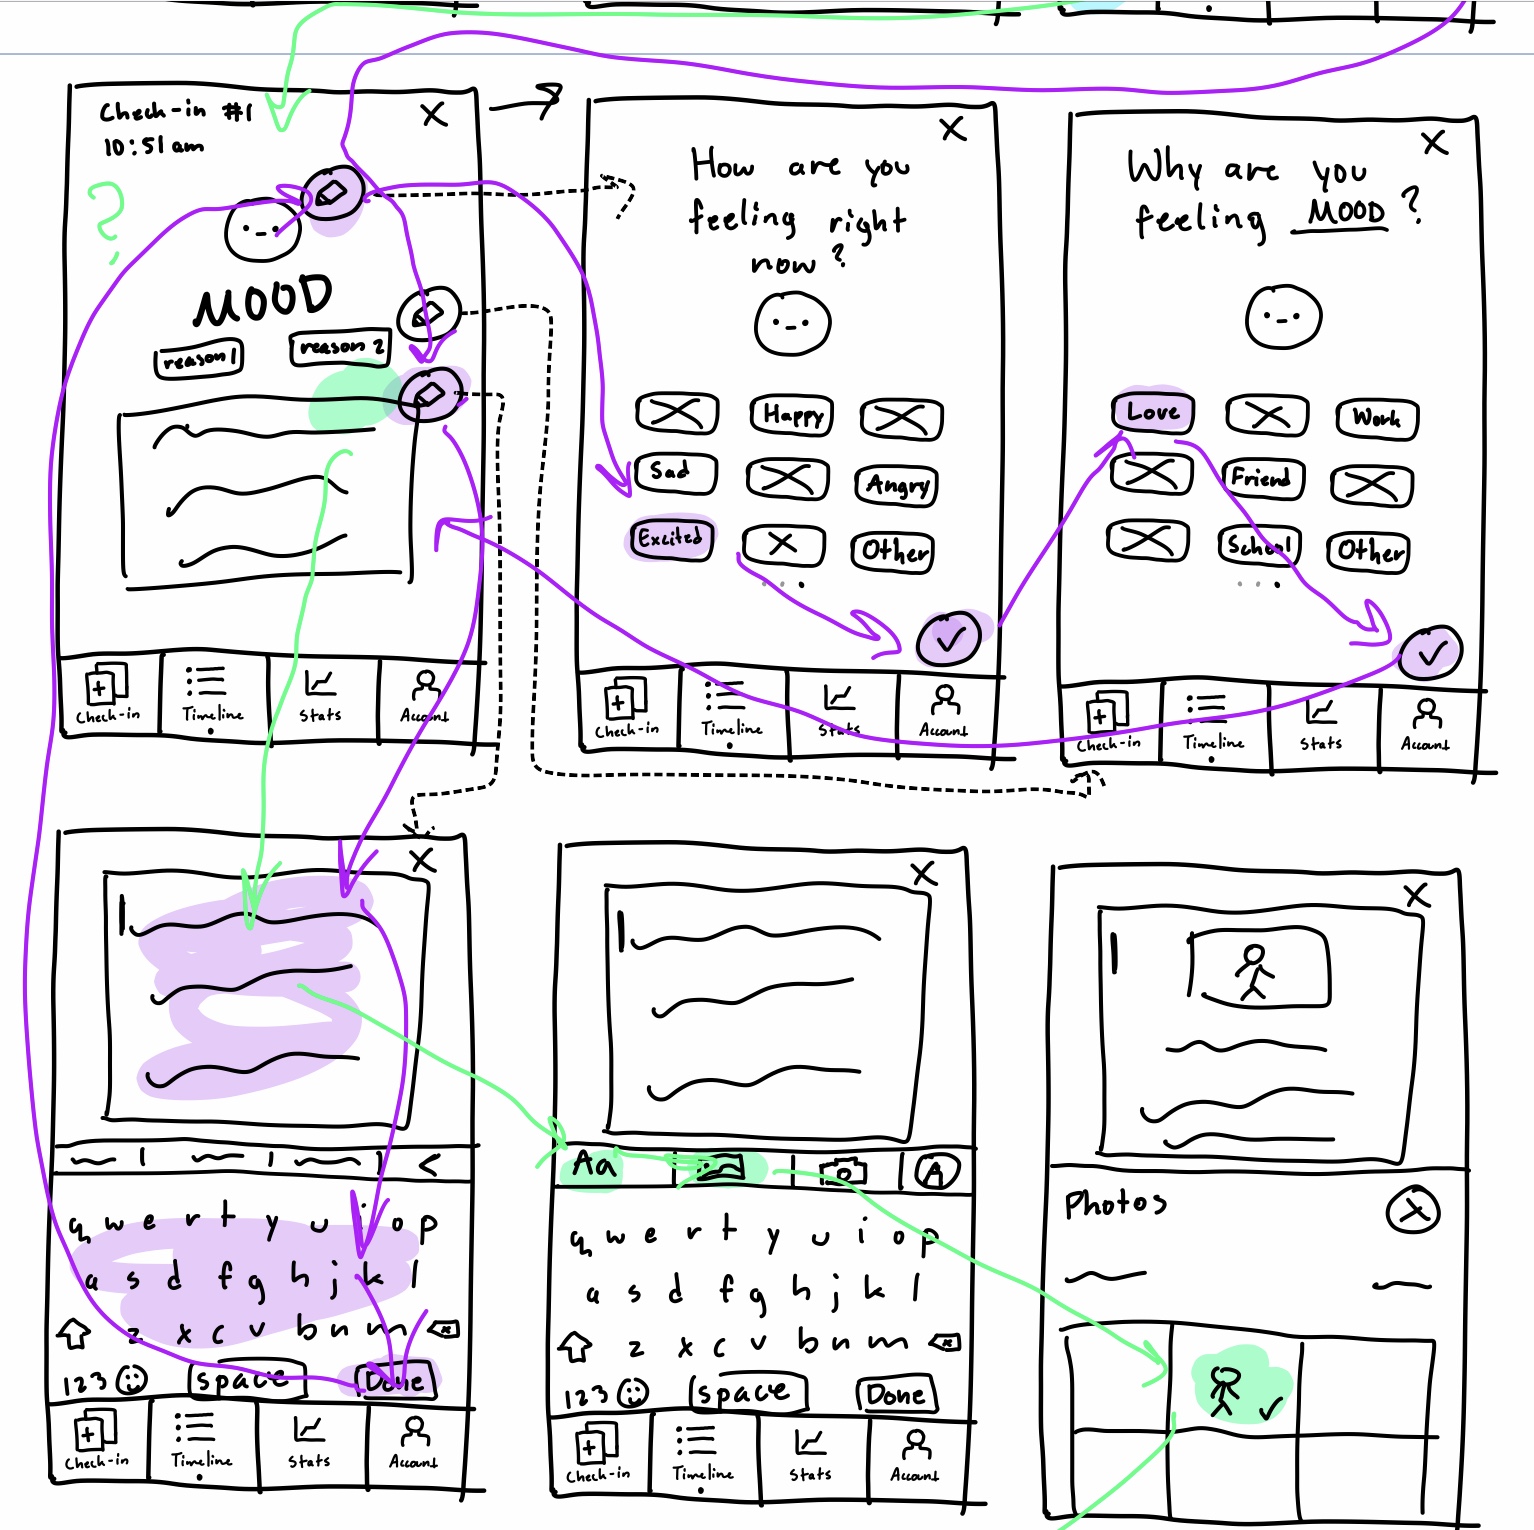 Check-in #1
10:51 am
?
MOOD
reason 1
reason 2
Check-in
Timeline
Stats
Account
How are you
feeling right
now?
Happy
Sad
Angry
Excited
Other
Check-in
Timeline
Stats
Account
Why are you
feeling MOOD?
Love
Work
Friend
School
Other
Check-in
Timeline
Stats
Account
q w e r t y u i o p
a s d f g h j k l
z x c v b n m
123 space Done
Check-in
Timeline
Stats
Account
Aa
A
q w e r t y u i o p
a s d f g h j k l
z x c v b n m
123 space Done
Check-in
Timeline
Stats
Account
Photos